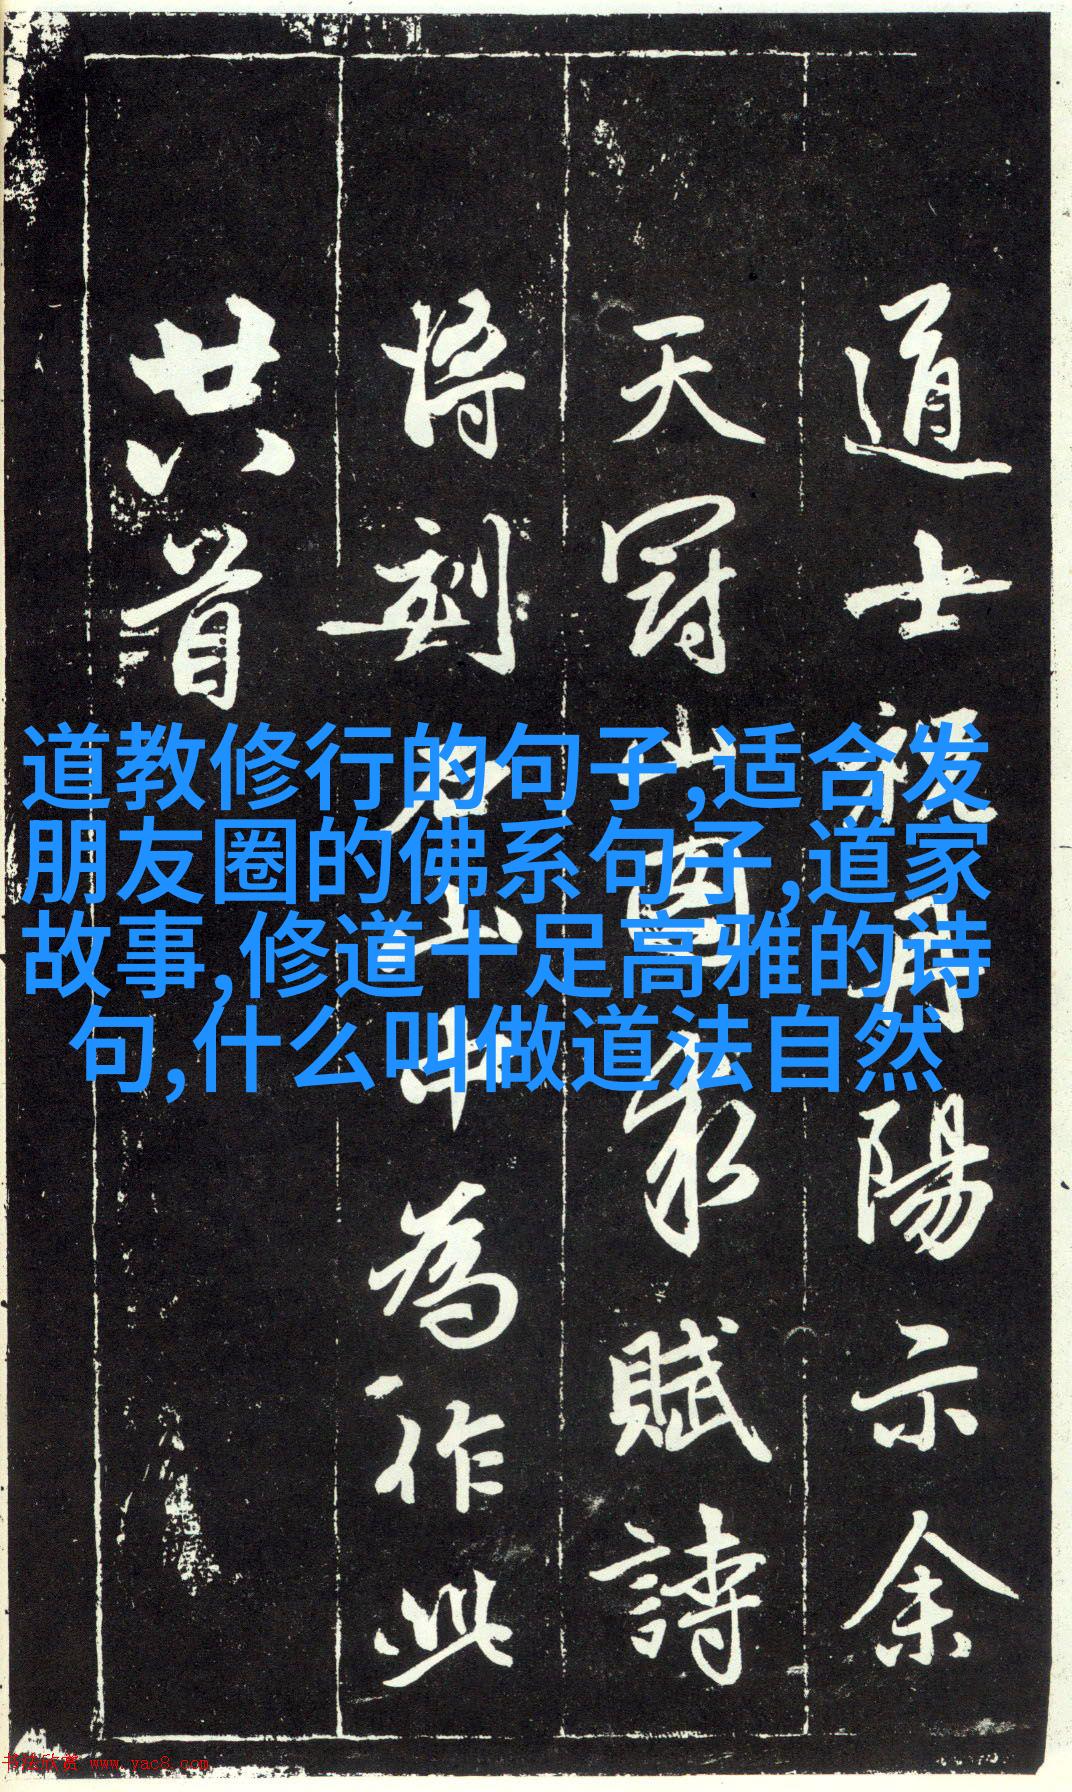 道士祝丹陽示余
天冠山圖求賦詩
將刻石山中為作此
廿八首
道教修行的句子,适合发
朋友圈的佛系句子,道家
故事,修道十足高雅的诗
句,什么叫做道法自然
书法欣赏 www.yac8.com